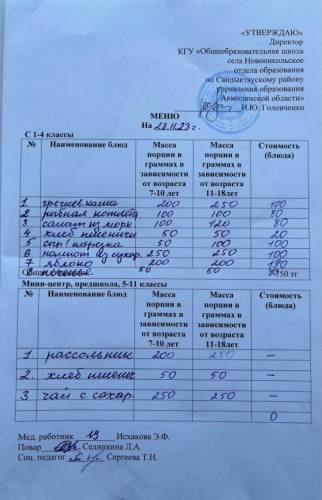 «УТВЕРЖДАЮ»
Директор
КГУ «Общеобразовательная школа
села Новоникольское
отдела образования
по Сандыктаускому району
управления образования
Акмолинской области»
И.Ю. Головченко
МЕНЮ
На 28.11.23 г.
С 1-4 классы
№ Наименование блюд Масса порции в граммах в зависимости от возраста 7-10 лет Масса порции в граммах в зависимости от возраста 11-18лет Стоимость (блюда)
1 гречнев.каша 200 250 100
2 рыбная котлета 100 100 80
3 салат из морк. 100 120 80
4 хлеб пшеничн 50 50 20
5 сыр/нарезка 50 100 100
6 компот из сухор. 250 250 100
7 яблоко 200 200
8 печенье 50 50
Мини-центр, предшкола, 5-11 классы
№ Наименование блюд Масса порции в граммах в зависимости от возраста 7-10 лет Масса порции в граммах в зависимости от возраста 11-18лет Стоимость (блюда)
1. рассольник 200 250 –
2. хлеб пшенич 50 50 –
3 чай с сахар. 250 250 –
0
Мед. работник Исхакова Э.Ф.
Повар Селинкина Л.А.
Соц. педагог Сергеева Т.Н.